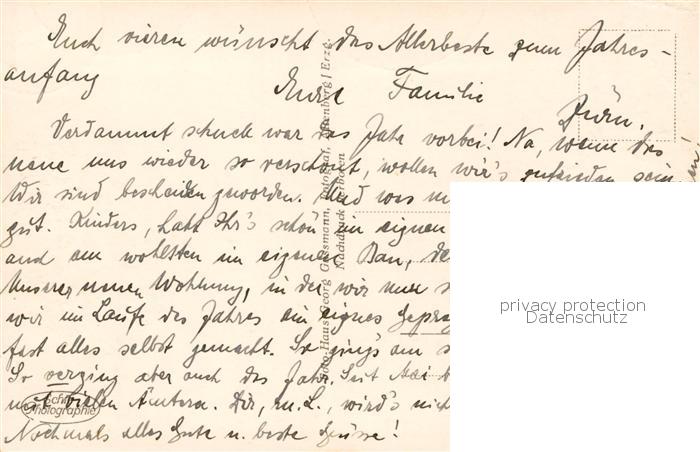 Euch vieren wünscht das Allerbeste zum Jahres-
anfang
Eure Familie
Zürn.
Verdammt schnell war das Jahr vorbei! Na, wenn das
neue uns wieder so verschont, wollen wir's zufrieden sein.
Wir sind bescheiden geworden. Und was
gut. Kinders, habt Ihr's schön im eignen
und am wohlsten im eigenen Bau,
Unserer neuen Wohnung, in der wir nun
wir im Laufe des Jahres ein eignes
fast alles selbst gemacht. So ging's am
So verging aber auch das Jahr. Seit Mai
mit vielen Ämtern. Dir, m. L., wird's
Nochmals alles Gute u. beste Grüsse!
Foto-Haus Georg Gassmann, Altenberg | Erzg.
Nachdruck verboten
Echte
Photographie
privacy protection
Datenschutz